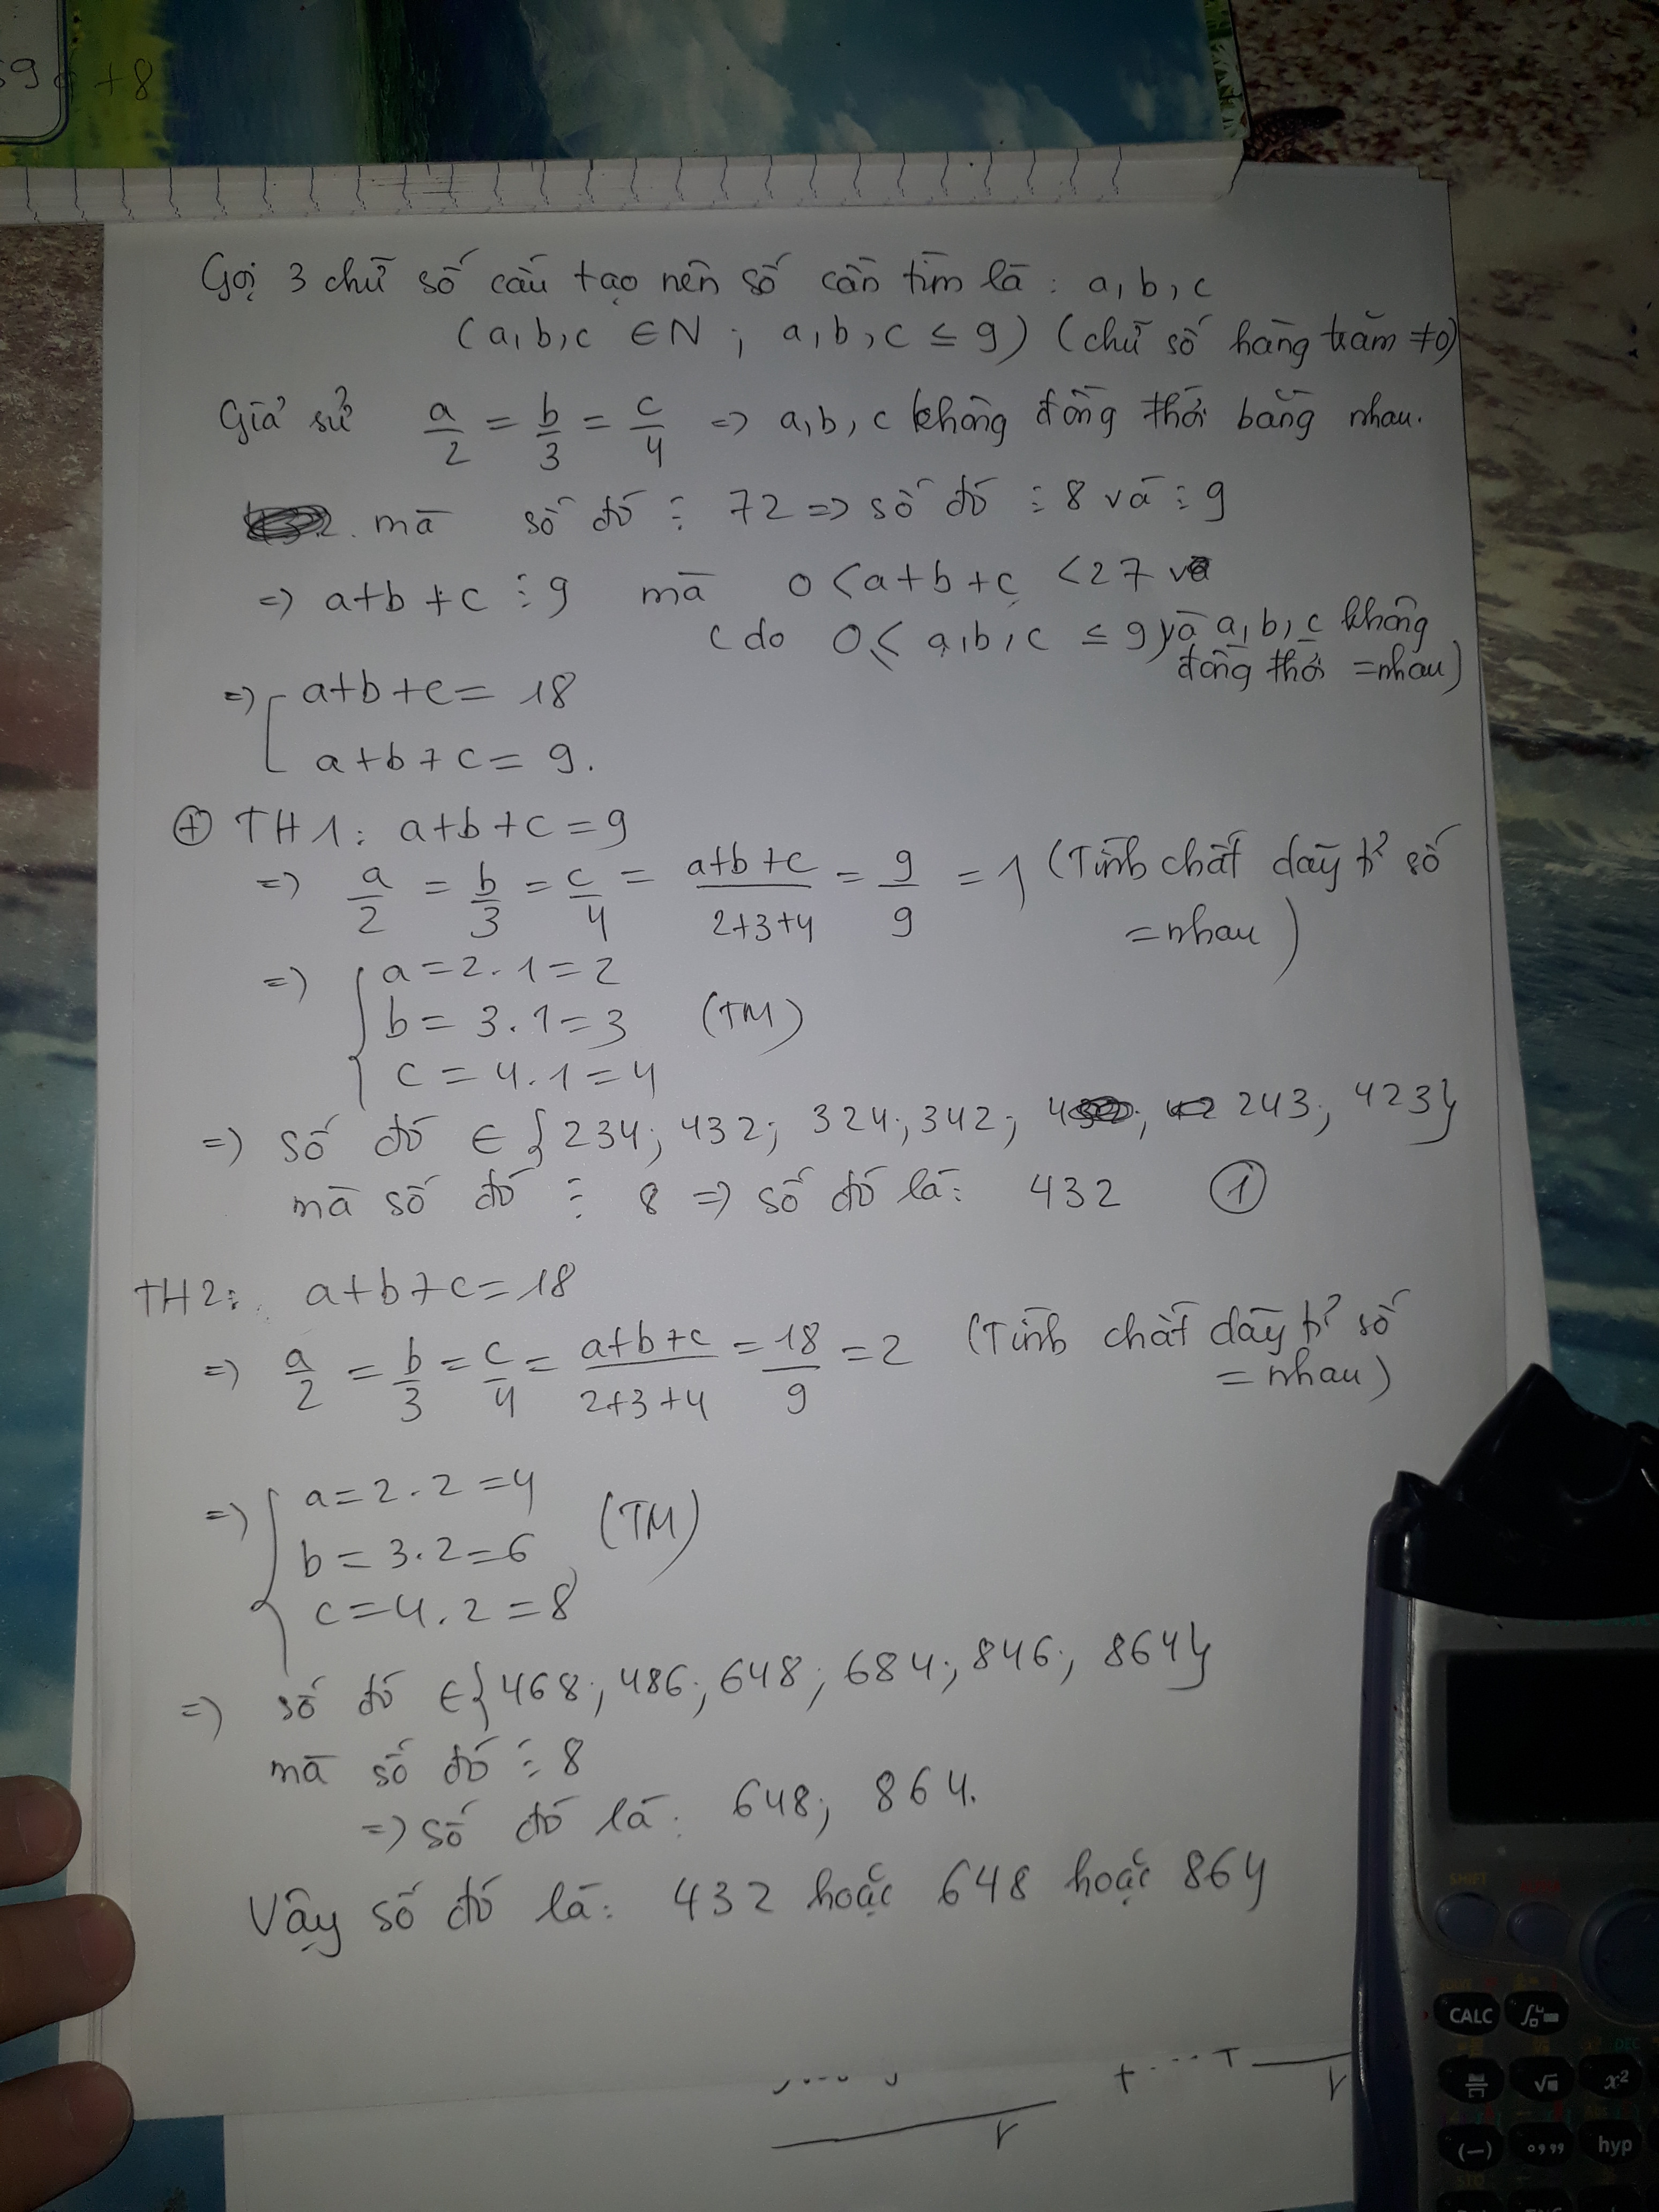 59 + 8
Gọi 3 chữ số cấu tạo nên số cần tìm là : a, b, c
(a, b, c ∈ N ; a, b, c ≤ 9) (chữ số hàng trăm ≠0)
Giả sử a/2 = b/3 = c/4 => a, b, c không đồng thời bằng nhau.
mà số đó ⋮ 72 => số đó ⋮ 8 và ⋮ 9
=> a+b+c ⋮ 9 mà 0 < a+b+c < 27
(do 0 ≤ a, b, c ≤ 9 và a, b, c không
đồng thời = nhau)
=> [ a+b+c = 18
a+b+c = 9.
⊕ TH1: a+b+c = 9
=> a/2 = b/3 = c/4 = (a+b+c)/(2+3+4) = 9/9 = 1 (Tính chất dãy tỉ số
= nhau)
=> { a = 2.1 = 2
b = 3.1 = 3 (TM)
c = 4.1 = 4
=> số đó ∈ {234; 432; 324; 342; 243; 423}
mà số đó ⋮ 8 => số đó là: 432 ①
TH2: a+b+c = 18
=> a/2 = b/3 = c/4 = (a+b+c)/(2+3+4) = 18/9 = 2 (Tính chất dãy tỉ số
= nhau)
=> { a = 2.2 = 4
b = 3.2 = 6 (TM)
c = 4.2 = 8
=> số đó ∈ {468; 486; 648; 684; 846; 864}
mà số đó ⋮ 8
=> số đó là: 648; 864.
Vậy số đó là: 432 hoặc 648 hoặc 864
SHIFT
CALC
x²
(−) hyp